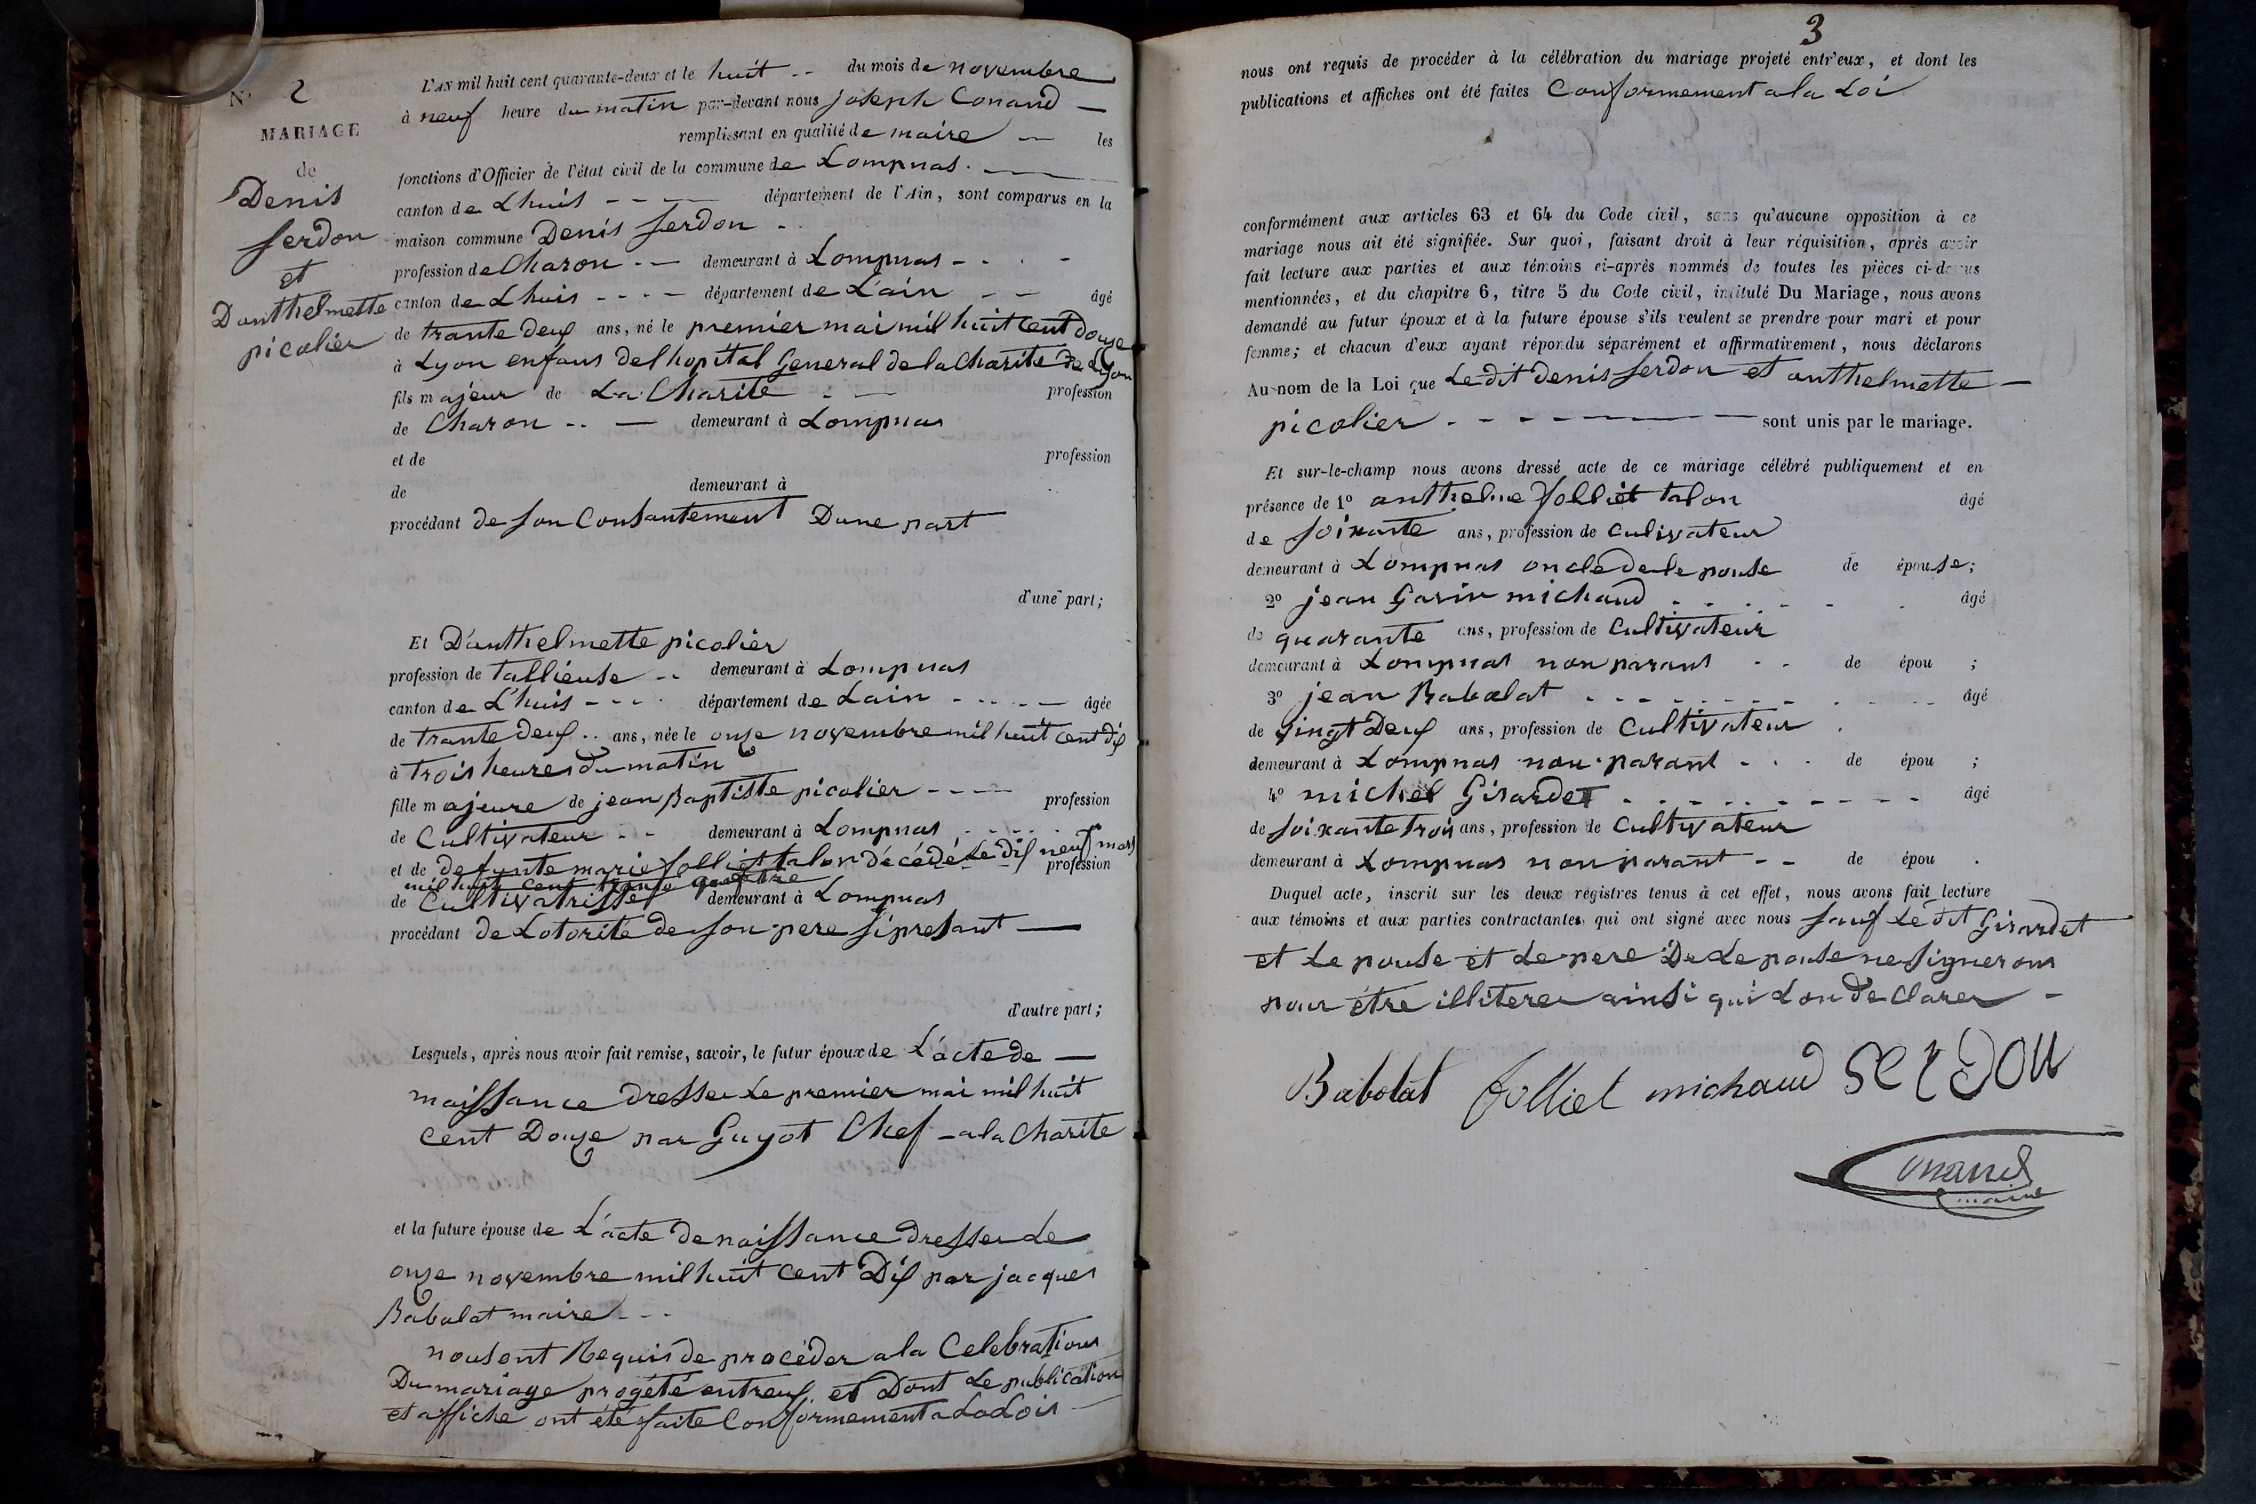 N° 2
MARIAGE
de
Denis
serdon
et
Danthelmette
picolier
L'AN mil huit cent quarante-deux et le huit du mois de novembre
à neuf heure du matin par-devant nous joseph Conand
remplissant en qualité de maire les
fonctions d'Officier de l'état civil de la commune de Lompnas
canton de Lhuis département de l'Ain, sont comparus en la
maison commune Denis serdon
profession de Charon demeurant à Lompnas
canton de Lhuis département de L'ain âgé
de trante deux ans, né le premier mai mil huit cent douze
à Lyon enfans del hopital General de la Charité De Lyon
fils majeur de La Charité profession
de Charon demeurant à Lompnas
et de profession
de demeurant à
procédant de son Consantement Dune part
d'une part;
Et D'anthelmette picolier
profession de tallieuse demeurant à Lompnas
canton de L'huis département de Lain âgée
de trante deux ans, née le onze novembre mil huit cent dix
à trois heures du matin
fille majeure de jean Baptiste picolier profession
de Cultivateur demeurant à Lompnas
et de defunte marie Jolliet talon décédé Le dix neuf mars
mil huit cent trante quattre profession
de Cultivatrisse demeurant à Lompnas
procédant de Lotorite de son pere si present
d'autre part;
Lesquels, après nous avoir fait remise, savoir, le futur époux de L'acte de
naissance dresser Le premier mai mil huit
cent Douze par Guyot Chef a la Charite
et la future épouse de L'acte de naissance dresser Le
onze novembre mil huit cent Dix par jacques
Babolat maire
nous ont Requis de procéder a la Celebrations
Du mariage progété entreux et Dont Le publication
et affiche ont été faite Conformement a La Lois
3
nous ont requis de procéder à la célébration du mariage projeté entr'eux, et dont les
publications et affiches ont été faites Conformement a la Loi
conformément aux articles 63 et 64 du Code civil, sans qu'aucune opposition à ce
mariage nous ait été signifiée. Sur quoi, faisant droit à leur réquisition, après avoir
fait lecture aux parties et aux témoins ci-après nommés de toutes les pièces ci-dessus
mentionnées, et du chapitre 6, titre 5 du Code civil, intitulé Du Mariage, nous avons
demandé au futur époux et à la future épouse s'ils veulent se prendre pour mari et pour
femme; et chacun d'eux ayant répondu séparément et affirmativement, nous déclarons
Au nom de la Loi que Le dit denis serdon et anthelmette
picolier sont unis par le mariage.
Et sur-le-champ nous avons dressé acte de ce mariage célébré publiquement et en
présence de 1° anthelme Jolliet talon âgé
de soixante ans, profession de culivateur
demeurant à Lompnas oncle de le pouse de épouse;
2° jean Gavin michaud âgé
de quarante ans, profession de Cultivateur
demeurant à Lompnas non parans de épou ;
3° jean Babolat âgé
de vingt Deux ans, profession de Cultivateur
demeurant à Lompnas non parant de épou ;
4° michel Girardet âgé
de soixante trois ans, profession de Cultivateur
demeurant à Lompnas non parant de épou .
Duquel acte, inscrit sur les deux registres tenus à cet effet, nous avons fait lecture
aux témoins et aux parties contractantes qui ont signé avec nous sauf Le dit Girardet
et Le pouse et Le pere De Le pouse ne signerons
pour être illiterer ainsi qui Lon De clarer
Babolat Jolliet michaud serdon
Conand
maire